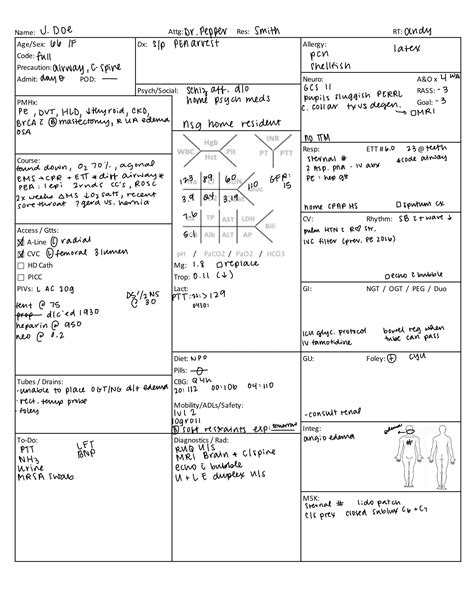 Name: J. DOE
Attg: Dr. Pepper Res: Smith
RT: andy
Age/Sex: 66 /F
Code: full
Precaution: airway, c-spine
Admit: day 0 POD: —
Dx: s/p PEA arrest
Psych/Social: schiz aff. d/o
home psych meds
nsg home resident
Allergy:
latex
pcn
shellfish
Neuro: A&O x 4 WA
GCS 11 RASS: -3
pupils sluggish PERRL Goal: -3
c. collar t x vs degen. → □MRI
no TTM
PMHx:
PE, DVT, HLD, ↓thyroid, CKD,
BrCA c B mastectomy, R UA edema
OSA
Course:
found down, O2 70%, agonal
EMS → CPR + ETT * diff airway *
PEA: 1 epi 2 rnds CC's, ROSC
2x weeks ΔMS ↓O2 sats, recent
sore throat ? gerd vs. hernia
Hgb
WBC Plt
Hct
INR
PT PTT
123 89 60 110 GFR:
15
3.9 24 3.19
7.6 TP AST LDH
Bili
5.1 Alb ALT AP
pH / PaCO2 / PaO2 / HCO3
Mg: 1.8 □replace
Trop: 0.11 (↓)
Lact:
PTT: >129
0430:
Resp: ETT #6.0 23 @ teeth
sternal # *code airway
? Asp. pna. - IV abx
PE: hep gtt
home CPAP HS □sputum cx
CV: Rhythm: SB c ↑ wave ↓
pulm HTN c R♡ str.
IVC filter (prev. PE 2016)
□echo c bubble
Access / Gtts:
A-Line L radial
CVC L femoral 3 lumen
HD Cath
PICC
PIVs: L AC 20g
D5 1/2 NS
@ 30
fent @ 75
prop — d/c'ed 1930
heparin @ 950
neo @ 0.2
GI: NGT / OGT / PEG / Duo
ICU glyc. protocol bowel reg when
IV famotidine tube can pass
Diet: NPO
Pills:
CBG: Q4h
20: 112 00: 106 04: 110
Mobility/ADLs/Safety:
lvl 2
logroll
B soft restraints exp: tomorrow
GU: Foley: + CYU
-consult renal
Tubes / Drains:
-unable to place OGT/NG d/t edema
-rect. temp probe
-foley
Integ:
angio edema
edema
To-Do:
PTT LFT
NH3 BNP
Urine
MRSA swab
Diagnostics / Rad:
RUQ U/S
MRI Brain + C/spine
echo c bubble
U + L E duplex U/s
MSK:
sternal # lido patch
c/s prex closed sublux C6 + C7